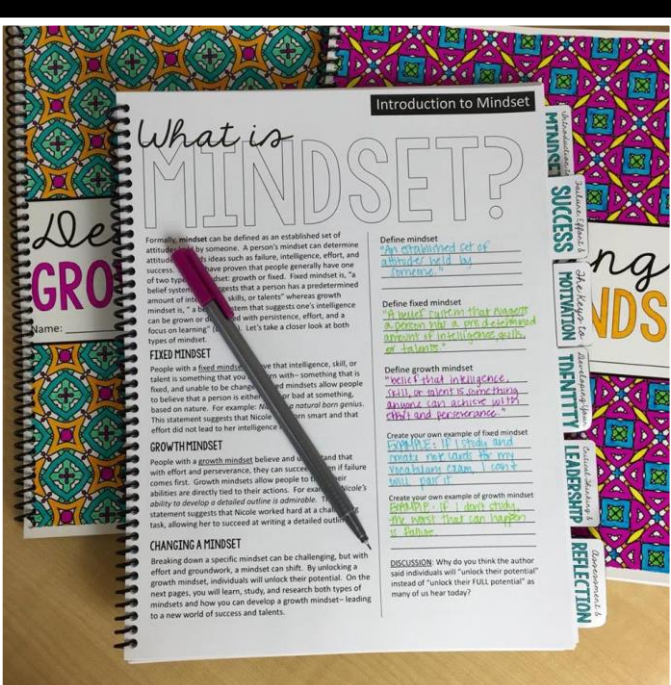 Introduction to Mindset
What is
MINDSET?
Formally, mindset can be defined as an established set of
attitudes by someone. A person's mindset can determine
attitudes ideas such as failure, intelligence, effort, and
success. have proven that people generally have one
of two types mindset: growth or fixed. Fixed mindset is, "a
belief system suggests that a person has a predetermined
amount of skills, or talents" whereas growth
mindset is, "a system that suggests one's intelligence
can be grown or with persistence, effort, and a
focus on learning" Let's take a closer look at both
types of mindset.
FIXED MINDSET
People with a fixed mindset that intelligence, skill, or
talent is something that you with—something that is
fixed, and unable to be changed mindsets allow people
to believe that a person is either or bad at something,
based on nature. For example: natural born genius.
This statement suggests that Nicole born smart and that
effort did not lead to her intelligence
GROWTH MINDSET
People with a growth mindset believe and that
with effort and perseverance, they can succeed if failure
comes first. Growth mindsets allow people to their
abilities are directly tied to their actions. For example Nicole's
ability to develop a detailed outline is admirable.
statement suggests that Nicole worked hard at a
task, allowing her to succeed at writing a detailed
CHANGING A MINDSET
Breaking down a specific mindset can be challenging, but with
effort and groundwork, a mindset can shift. By unlocking a
growth mindset, individuals will unlock their potential. On the
next pages, you will learn, study, and research both types of
mindsets and how you can develop a growth mindset—leading
to a new world of success and talents.
Define mindset
"An established set of
attitudes held by
someone."
Define fixed mindset
"A belief system that suggests
a person has a predetermined
amount of intelligence, skills,
or talents."
Define growth mindset
"belief that intelligence,
skill, or talent is something
anyone can achieve with
effort and perseverance."
Create your own example of fixed mindset
EXAMPLE: If I study and
make note cards for my
vocabulary exam, I can't
will pass it.
Create your own example of growth mindset
EXAMPLE: If I don't study,
the worst that can happen
is failure.
DISCUSSION: Why do you think the author
said individuals will "unlock their potential"
instead of "unlock their FULL potential" as
many of us hear today?
Introduction to
MINDSET
Failure, Effort &
SUCCESS
The Keys to
MOTIVATION
Developing Your
IDENTITY
Critical Thinking &
LEADERSHIP
Assessment &
REFLECTION
De
GRO
Name:
ng
NDS